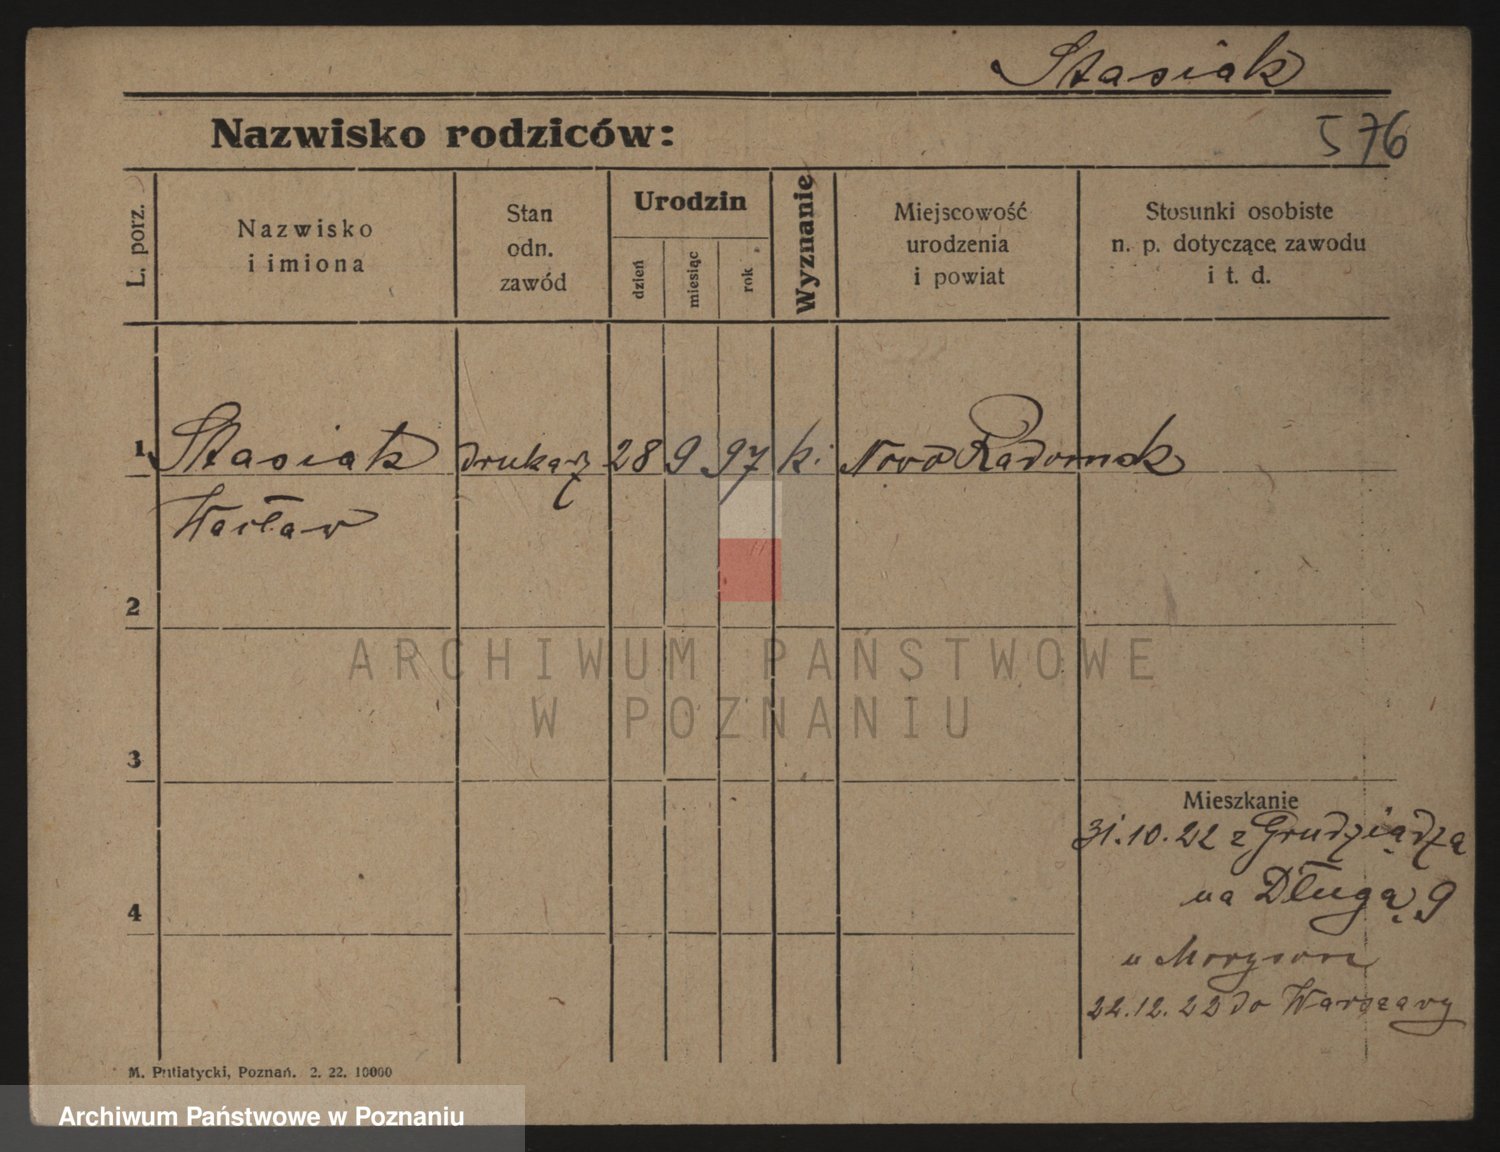 Stasiak
Nazwisko rodziców:
576
L. porz.
Nazwisko
i imiona
Stan
odn.
zawód
Urodzin
dzień
miesiąc
rok
Wyznanie
Miejscowość
urodzenia
i powiat
Stosunki osobiste
n. p. dotyczące zawodu
i t. d.
1 Stasiak drukarz 28 9 97 k. Novo Radomsk
Wacław
2
ARCHIWUM PAŃSTWOWE
W POZNANIU
3
Mieszkanie
31.10.22 z Grudziądza
4
na Długą 9
u
22.12.22 do Warszawy
M. Putiatycki, Poznań. 2. 22. 10000
Archiwum Państwowe w Poznaniu